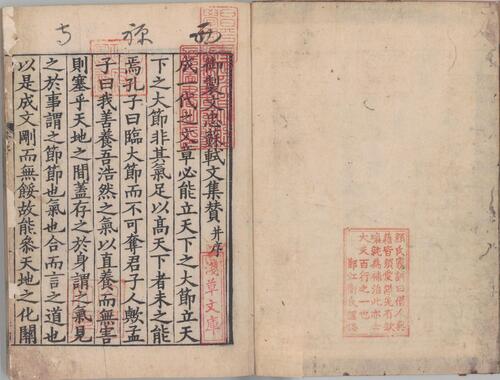 顏氏家訓曰借人典
籍皆須愛護先有缺
壞就為補治此亦士
大夫百行之一也
御製文忠蘇軾文集賛 并序
成一代之文章必能立天下之大節立天
下之大節非其氣足以高天下者未之能
焉孔子曰臨大節而不可奪君子人歟孟
子曰我善養吾浩然之氣以直養而無害
則塞乎天地之間蓋存之於身謂之氣見
之於事謂之節節也氣也合而言之道也
以是成文剛而無餒故能參天地之化關
淺草文庫